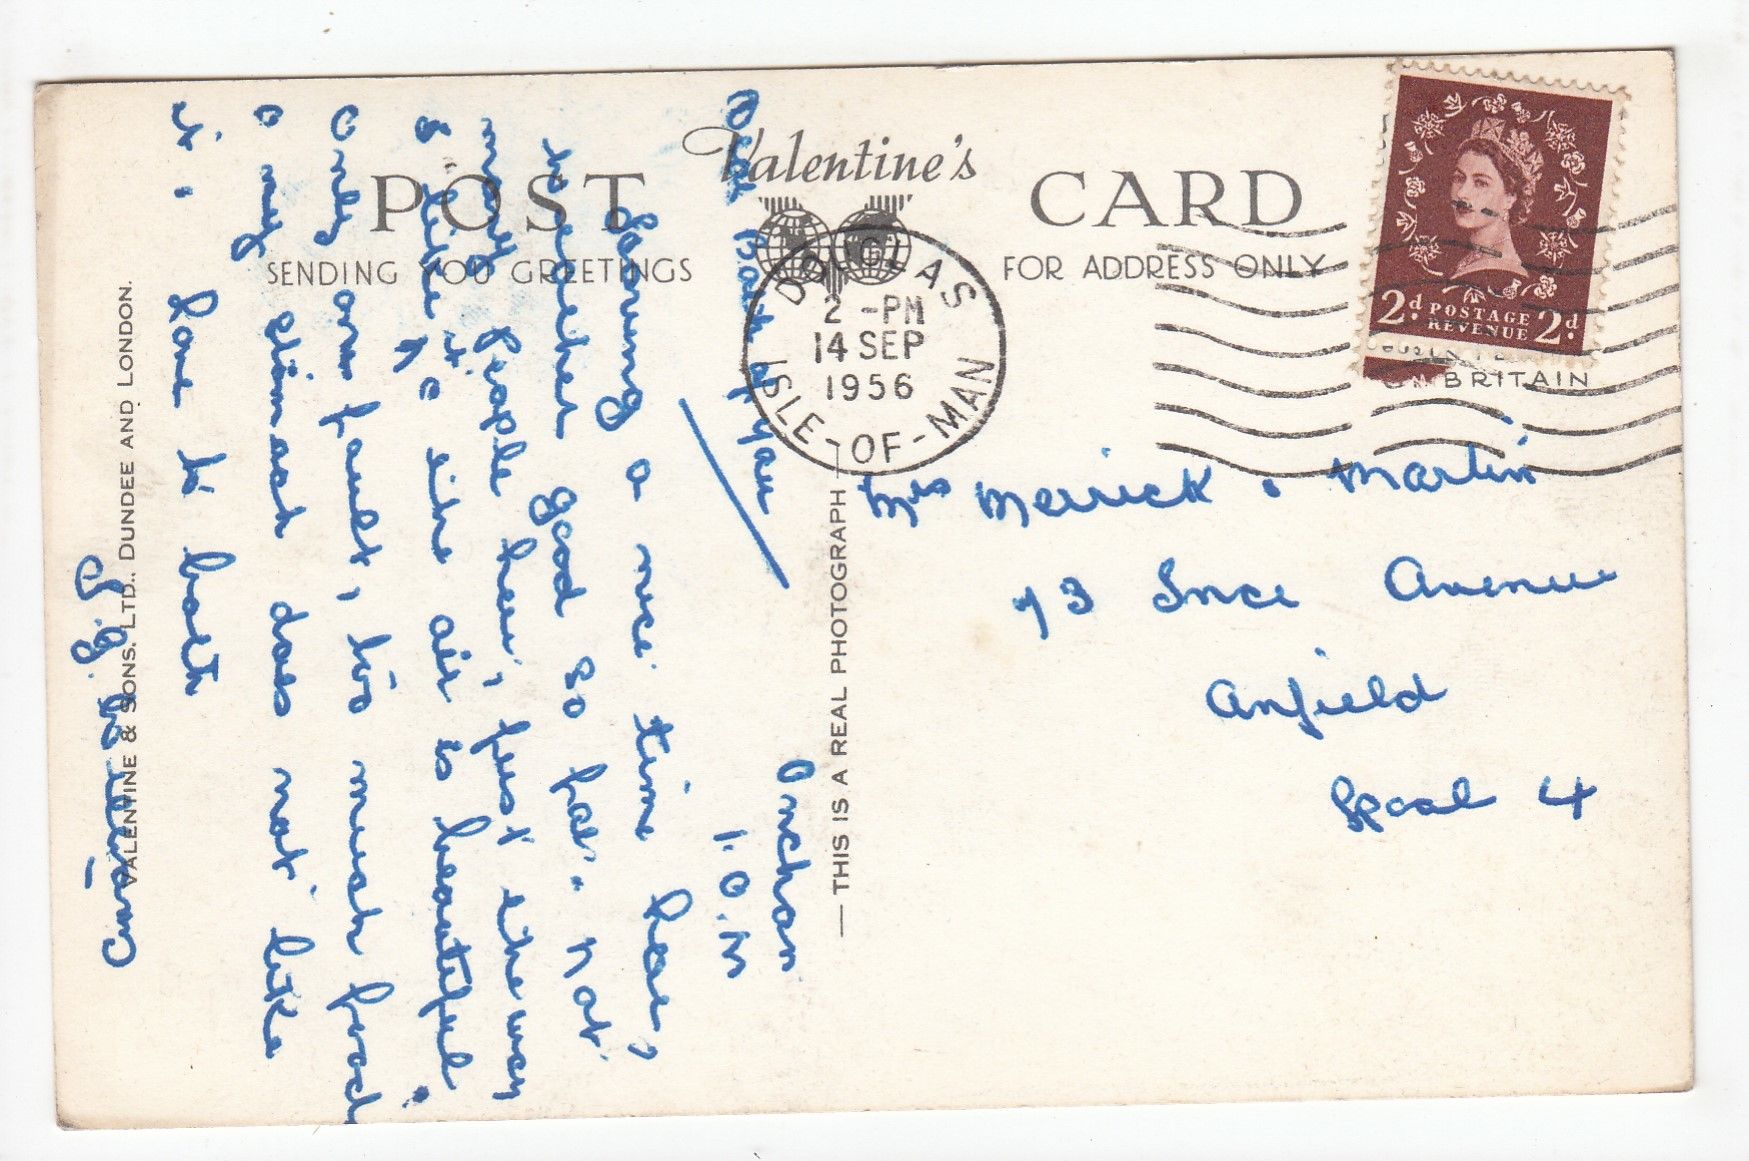 POST
Valentine's
CARD
SENDING YOU GREETINGS
FOR ADDRESS ONLY
DOUGLAS
2 -PM
14 SEP
1956
ISLE-OF-MAN
2d POSTAGE REVENUE 2d
BRITAIN
Mrs Merrick. Martin
73 Ince Avenue
Anfield
Lpool 4
THIS IS A REAL PHOTOGRAPH
VALENTINE & SONS. LTD., DUNDEE AND LONDON.
Onchan
I.O.M
Dear Both of you
Having a nice time here,
weather good so far. Not
many people here, just the way
I like it. the air is beautiful.
Only one fault, too much food
&amp; my stomach does not like
it. Love to both